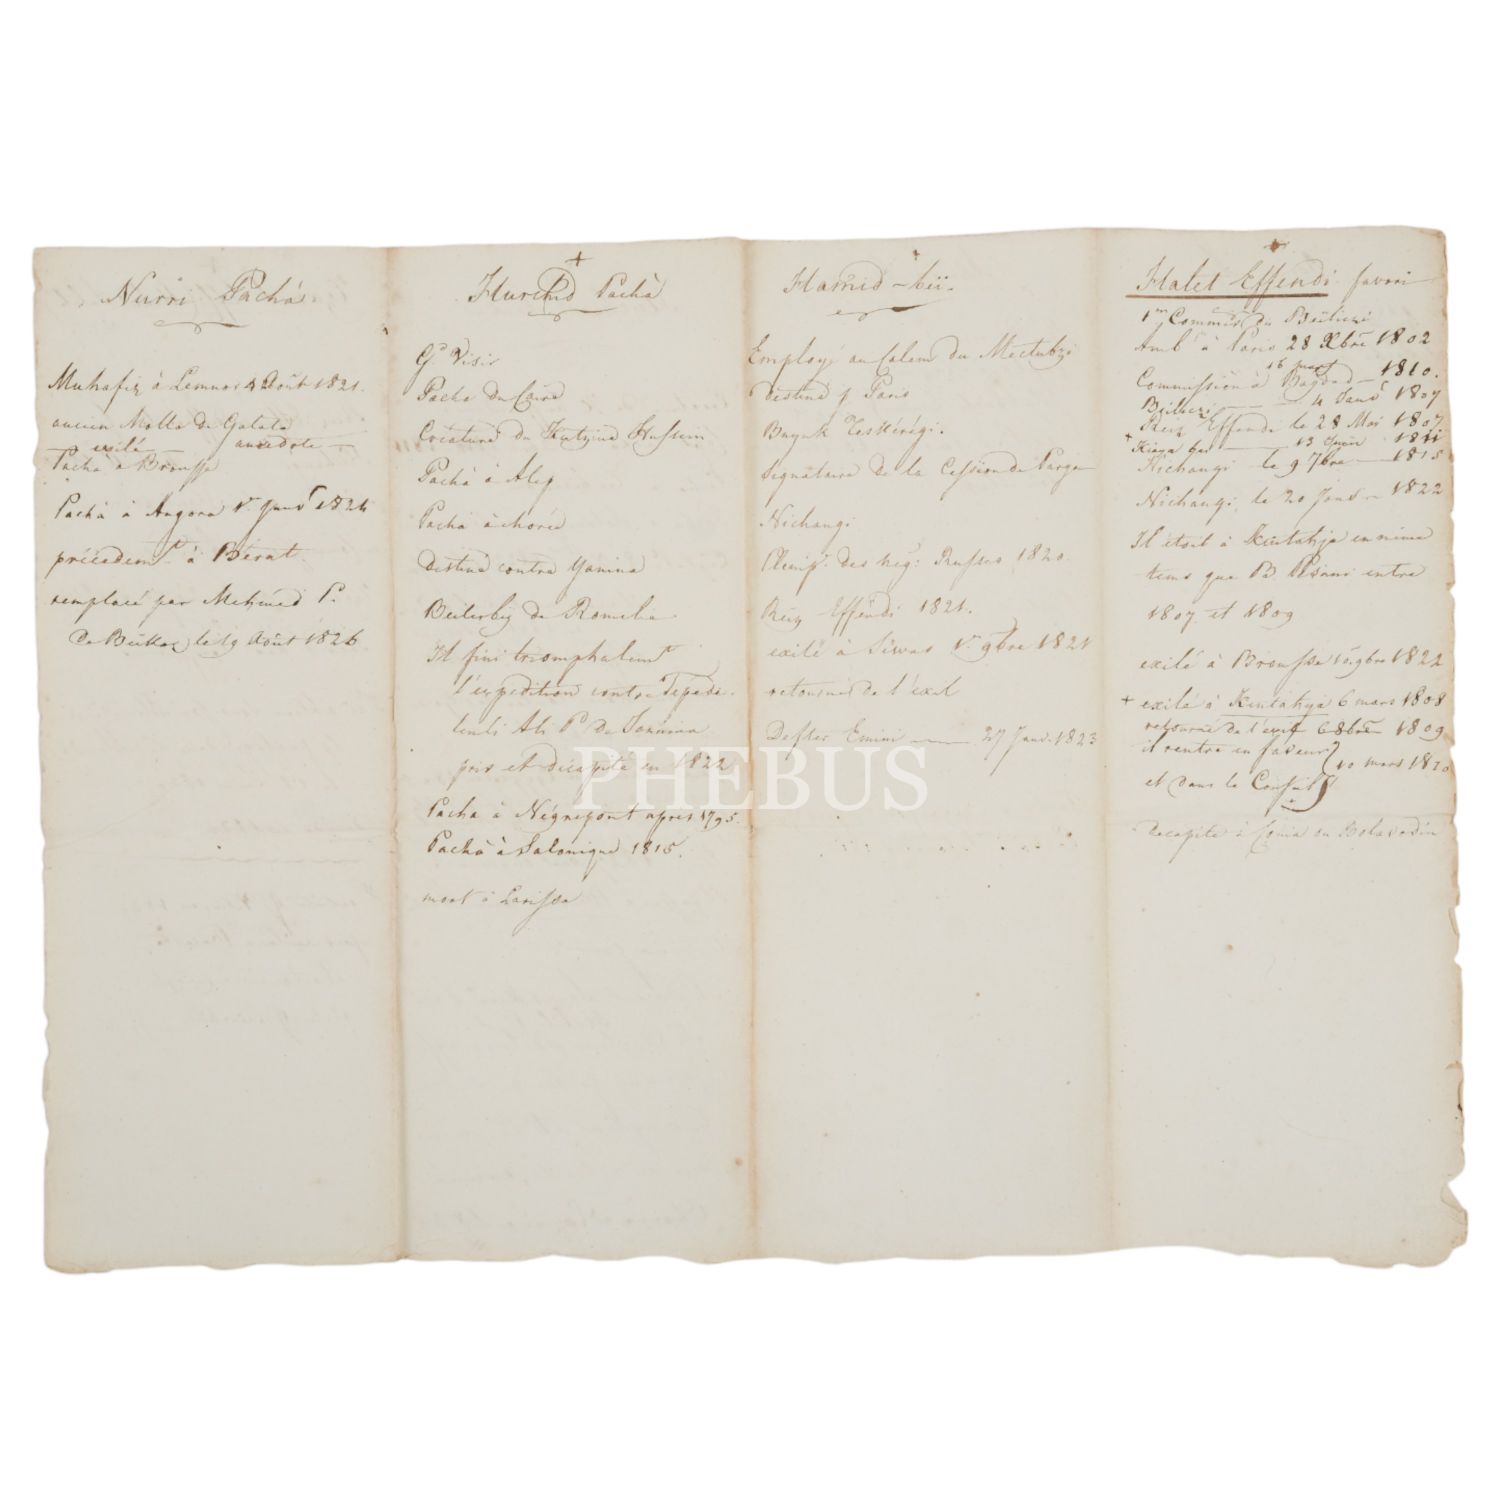 Nurri Pachà
Muhafiz à Lemnos 4 Août 1821.
ancien Molla de Galata
exilé anecdote
Pachà à Brousse
Pachà à Angora 1r. Janvr 1824
précédemt à Bérat.
remplacé par Mehmed P.
le 19 Août 1826
+
Hurchid Pachà
Gd Visir
Pacha du Caire
Créature du Kutziuc Hussein
Pachà à Alep
Pachà à Morée
Destiné contre Yanina
Beilerbey de Romelie
Il fini triomphalemt
l'expedition contre Tepede-
lenli Ali P. de Jannina
pris et décapité en 1822
Pacha à Négrepont apres 1795.
Pachà à Salonique 1815.
mort à Larissa
Hamid-bei.
Employé au Calem du Mectubzi
destiné p Paris
Buyuk Teskérégi.
signataire de la Cession de Parga
Nichangi
Plenip. des neg. Russes 1820.
Reiz Effendi 1821.
exilé à Siwas 1r. 9bre 1821
retourné de l'exil
Defter Emini — 27 Janv. 1823
+
Halet Effendi favori
1er Commis du Beiliczi
Ambr à Paris 28 Xbre 1802
16 mars
Commission à Bagdad — 1810.
Beilikzi — 4 Janvr 1807
Reiz Effendi le 28 Mai 1807
+ Kiaya bei — 13 Juin 1811
Nichangi le 9 7bre — 1815
Nichangi, le 20 Janv — 1822
Il étoit à Kiutahja en même
tems que B. Pisani entre
1807 et 1809
exilé à Broussa 10. 9bre 1822
+ exilé à Kiutahja 6 mars 1808
retourné de l'exil 6 8bre 1809
il rentre en faveur } 10 mars 1810
et dans le Conseil
décapité à Conia ou Bolavadin
PHEBUS